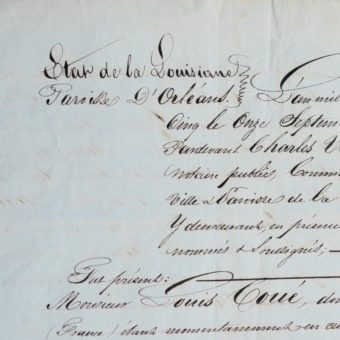 Etat de la Louisiane
Paroisse D'Orléans. L'an mil
Cinq le Onze Septem
Pardevant Charles V
notaire public, Comm
Ville & Paroisse de la
Y demeurant, en présenc
nommés & soussignés,
Fut présent:
Monsieur Louis Toué, dem
(France) étant momentanément en ce